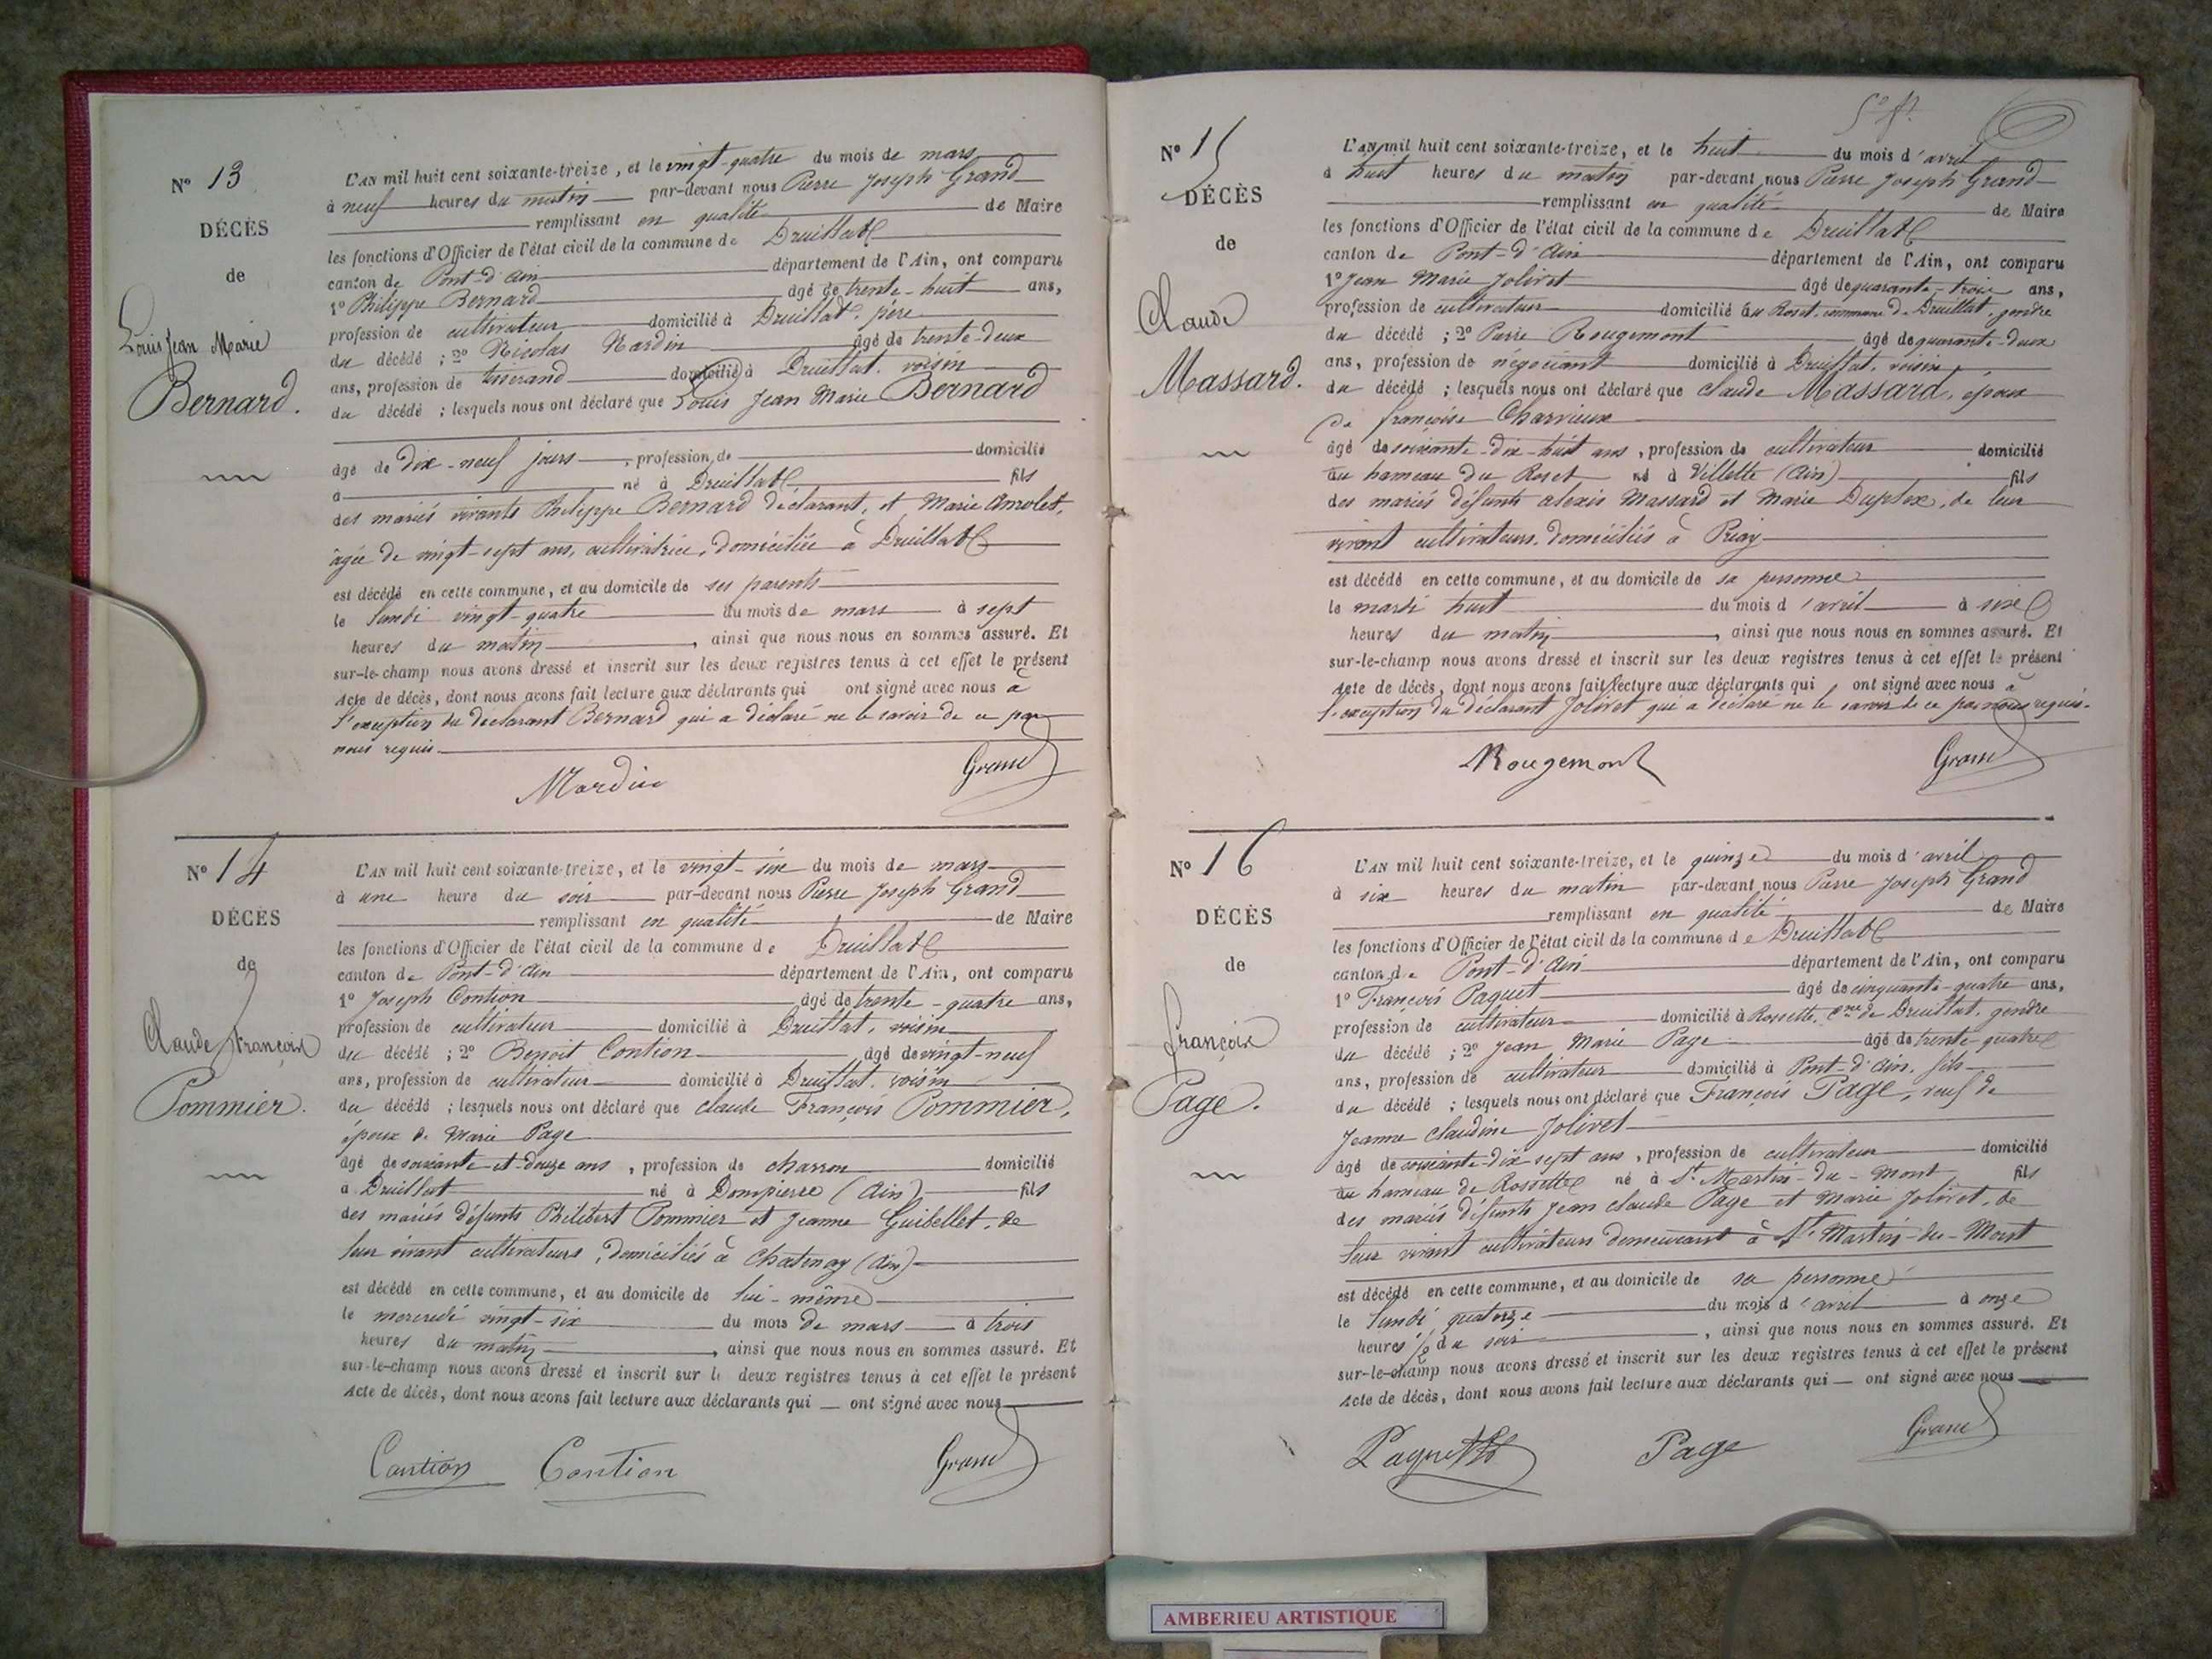 N° 13
DÉCÈS
de
Louis Jean Marie
Bernard.
L'AN mil huit cent soixante-treize, et le vingt-quatre du mois de mars
à neuf heures du matin par-devant nous Pierre Joseph Grand
remplissant en qualité de Maire
les fonctions d'Officier de l'état civil de la commune de Druillat
canton de Pont-d'Ain département de l'Ain, ont comparu
1° Philippe Bernard âgé de trente-huit ans,
profession de cultivateur domicilié à Druillat, père
du décédé ; 2° Nicolas Nardin âgé de trente-deux
ans, profession de tisserand domicilié à Druillat, voisin
du décédé ; lesquels nous ont déclaré que Louis Jean Marie Bernard
âgé de dix-neuf jours, profession de domicilié
à né à Druillat fils
des mariés vivants Philippe Bernard déclarant, et Marie
âgée de vingt-sept ans, cultivatrice, domiciliée à Druillat
est décédé en cette commune, et au domicile de ses parents
le lundi vingt-quatre du mois de mars à sept
heures du matin, ainsi que nous nous en sommes assuré. Et
sur-le-champ nous avons dressé et inscrit sur les deux registres tenus à cet effet le présent
Acte de décès, dont nous avons fait lecture aux déclarants qui ont signé avec nous à
l'exception du déclarant Bernard qui a déclaré ne le savoir de ce par
nous requis.
Nardin Grand
N° 14
DÉCÈS
de
Claude François
Pommier.
L'AN mil huit cent soixante-treize, et le vingt-six du mois de mars
à une heure du soir par-devant nous Pierre Joseph Grand
remplissant en qualité de Maire
les fonctions d'Officier de l'état civil de la commune de Druillat
canton de Pont-d'Ain département de l'Ain, ont comparu
1° Joseph Contion âgé de trente-quatre ans,
profession de cultivateur domicilié à Druillat, voisin
du décédé ; 2° Benoit Contion âgé de vingt-neuf
ans, profession de cultivateur domicilié à Druillat, voisin
du décédé ; lesquels nous ont déclaré que Claude François Pommier,
époux de Marie Page
âgé de soixante et douze ans, profession de charron domicilié
à Druillat né à Dompierre (Ain) fils
des mariés défunts Philibert Pommier et Jeanne Guibellet, de
leur vivant cultivateurs, domiciliés à Chatenay (Ain)
est décédé en cette commune, et au domicile de lui-même
le mercredi vingt-six du mois de mars à trois
heures du matin, ainsi que nous nous en sommes assuré. Et
sur-le-champ nous avons dressé et inscrit sur les deux registres tenus à cet effet le présent
Acte de décès, dont nous avons fait lecture aux déclarants qui — ont signé avec nous
Contion Contion Grand
N° 15
DÉCÈS
de
Claude
Massard.
L'AN mil huit cent soixante-treize, et le huit du mois d'avril
à huit heures du matin par-devant nous Pierre Joseph Grand
remplissant en qualité de Maire
les fonctions d'Officier de l'état civil de la commune de Druillat
canton de Pont-d'Ain département de l'Ain, ont comparu
1° Jean Marie Jolivet âgé de quarante-trois ans,
profession de cultivateur domicilié au Roset, commune de Druillat, gendre
du décédé ; 2° Pierre Rougemont âgé de quarante-deux
ans, profession de négociant domicilié à Druillat, voisin
du décédé ; lesquels nous ont déclaré que Claude Massard, époux
de françoise Charvieux
âgé de soixante-dix-huit ans, profession de cultivateur domicilié
au hameau du Roset né à Villette (Ain) fils
des mariés défunts Alexis Massard et Marie Duplex, de leur
vivant cultivateurs, domiciliés à Priay
est décédé en cette commune, et au domicile de sa personne
le mardi huit du mois d'avril à six
heures du matin, ainsi que nous nous en sommes assuré. Et
sur-le-champ nous avons dressé et inscrit sur les deux registres tenus à cet effet le présent
Acte de décès, dont nous avons fait lecture aux déclarants qui ont signé avec nous à
l'exception du déclarant Jolivet qui a déclaré ne le savoir de ce par nous requis.
Rougemont Grand
N° 16
DÉCÈS
de
françois
Page.
L'AN mil huit cent soixante-treize, et le quinze du mois d'avril
à six heures du matin par-devant nous Pierre Joseph Grand
remplissant en qualité de Maire
les fonctions d'Officier de l'état civil de la commune de Druillat
canton de Pont-d'Ain département de l'Ain, ont comparu
1° François Paquet âgé de cinquante-quatre ans,
profession de cultivateur domicilié à Rossette, cne de Druillat, gendre
du décédé ; 2° Jean Marie Page âgé de trente-quatre
ans, profession de cultivateur domicilié à Pont-d'Ain, fils
du décédé ; lesquels nous ont déclaré que François Page, veuf de
Jeanne Claudine Jolivet
âgé de soixante-dix sept ans, profession de cultivateur domicilié
au hameau de Rossette né à St Martin-du-Mont fils
des mariés défunts Jean Claude Page et Marie Jolivet, de
leur vivant cultivateurs demeurant à St Martin-du-Mont
est décédé en cette commune, et au domicile de sa personne
le lundi quatorze du mois d'avril à onze
heures 1/2 du soir, ainsi que nous nous en sommes assuré. Et
sur-le-champ nous avons dressé et inscrit sur les deux registres tenus à cet effet le présent
Acte de décès, dont nous avons fait lecture aux déclarants qui — ont signé avec nous
Paquet Page Grand
AMBERIEU ARTISTIQUE